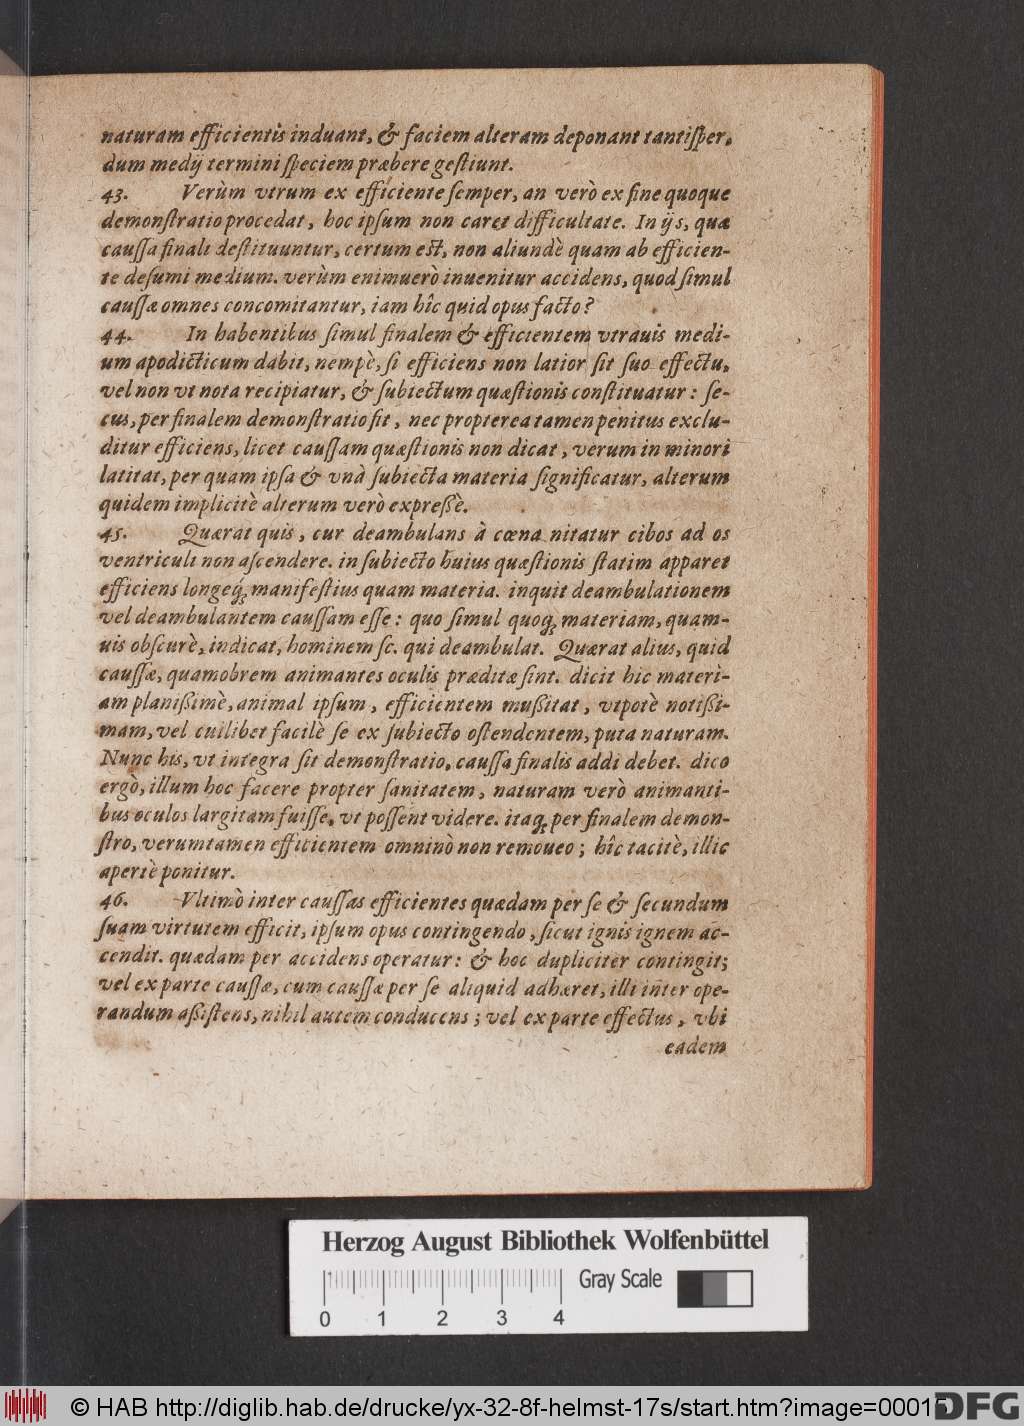 naturam efficientis induant, & faciem alteram deponant tantiſper,
dum medij termini ſpeciem præbere geſtiunt.
43. Verùm vtrum ex efficiente ſemper, an verò ex fine quoque
demonſtratio procedat, hoc ipſum non caret difficultate. In ijs, quæ
cauſſa finali deſtituuntur, certum eſt, non aliundè quam ab efficien-
te deſumi medium. verùm enimuerò inuenitur accidens, quod ſimul
cauſſæ omnes concomitantur, iam hîc quid opus facto?
44. In habentibus ſimul finalem & efficientem vtrauis medi-
um apodicticum dabit, nempè, ſi efficiens non latior ſit ſuo effectu,
vel non vt nota recipiatur, & ſubiectum quæſtionis conſtituatur: ſe-
cus, per finalem demonſtratio fit, nec propterea tamen penitus exclu-
ditur efficiens, licet cauſſam quæſtionis non dicat, verum in minori
latitat, per quam ipſa & vnà ſubiecta materia ſignificatur, alterum
quidem implicitè alterum verò expreßè.
45. Quærat quis, cur deambulans à cœna nitatur cibos ad os
ventriculi non aſcendere. in ſubiecto huius quæſtionis ſtatim apparet
efficiens longeq́; manifeſtius quam materia. inquit deambulationem
vel deambulantem cauſſam eſſe: quo ſimul quoq; materiam, quam-
uis obſcurè, indicat, hominem ſc. qui deambulat. Quærat alius, quid
cauſſæ, quamobrem animantes oculis præditæ ſint. dicit hic materi-
am planißimè, animal ipſum, efficientem mußitat, vtpotè notißi-
mam, vel cuilibet facilè ſe ex ſubiecto oſtendentem, puta naturam.
Nunc his, vt integra ſit demonſtratio, cauſſa finalis addi debet. dico
ergò, illum hoc facere propter ſanitatem, naturam verò animanti-
bus oculos largitam fuiſſe, vt poſſent videre. itaq; per finalem demon-
ſtro, verumtamen efficientem omninò non remoueo; hîc tacitè, illic
apertè ponitur.
46. Vltimò inter cauſſas efficientes quædam per ſe & ſecundum
ſuam virtutem efficit, ipſum opus contingendo, ſicut ignis ignem ac-
cendit. quædam per accidens operatur: & hoc dupliciter contingit;
vel ex parte cauſſæ, cum cauſſæ per ſe aliquid adhæret, illi inter ope-
randum aßiſtens, nihil autem conducens; vel ex parte effectus, vbi
eadem
Herzog August Bibliothek Wolfenbüttel
Gray Scale
0 1 2 3 4
© HAB http://diglib.hab.de/drucke/yx-32-8f-helmst-17s/start.htm?image=00015
DFG